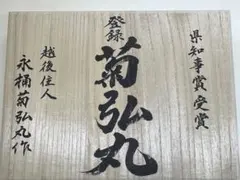 県知事賞受賞
登録
菊弘丸
越後住人
永桶菊弘丸作